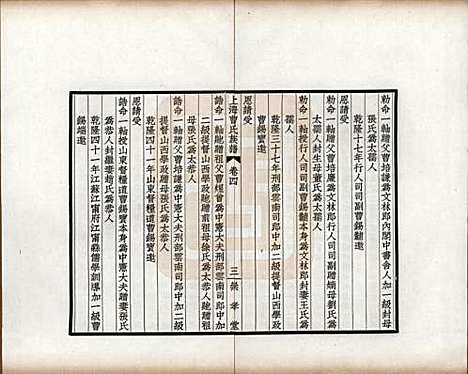 勅命一軸贈父曹培謙為文林郎內閣中書舍人加一級封母
張氏為太孺人
乾隆十七年行人司司副曹錫黼邀
恩請受
勅命一軸贈父曹培廉為文林郎行人司司副贈嫡母劉氏為
太孺人封生母董氏為太孺人
勅命一軸授行人司司副曹錫黼本身為文林郎封妻王氏為
孺人
乾隆三十七年刑部雲南司郎中加二級提督山西學政
曹錫寶邀
恩請受
上海曹氏族譜
卷四
三
崇孝堂
誥命一軸貤贈祖父曹煜曾為中憲大夫刑部雲南司郎中加
二級提督山西學政貤贈前祖母徐氏為太恭人貤贈祖
母張氏為太恭人
誥命一軸贈父曹培謙為中憲大夫刑部雲南司郎中加二級
提督山西學政贈母張氏為太恭人
乾隆四十一年山東督糧道曹錫寶邀
恩請受
誥命一軸授山東督糧道曹錫寶本身為中憲大夫贈妻張氏
為恭人封繼妻趙氏為恭人
乾隆四十一年江蘇江甯府江甯縣儒學訓導加一級曹
錫端邀